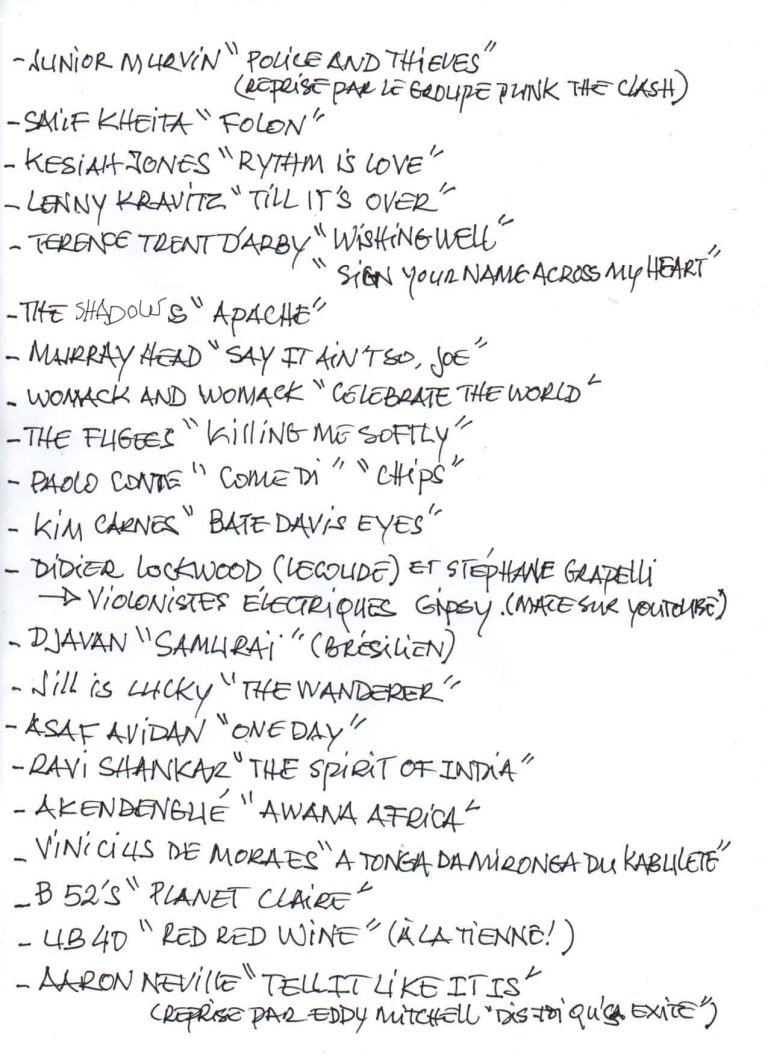 - JUNIOR MURVIN "POLICE AND THIEVES"
(REPRISE PAR LE GROUPE PUNK THE CLASH)
- SALIF KHEITA "FOLON"
- KESIAH JONES "RYTHM IS LOVE"
- LENNY KRAVITZ "TILL IT'S OVER"
- TERENCE TRENT D'ARBY "WISHING WELL"
"SIGN YOUR NAME ACROSS MY HEART"
- THE SHADOWS "APACHE"
- MURRAY HEAD "SAY IT AIN'T SO, JOE"
- WOMACK AND WOMACK "CELEBRATE THE WORLD"
- THE FUGEES "KILLING ME SOFTLY"
- PAOLO CONTE "COME DI" "CHIPS"
- KIM CARNES "BATE DAVIS EYES"
- DIDIER LOCKWOOD (LECOUDE) ET STÉPHANE GRAPELLI
→ VIOLONISTES ÉLECTRIQUES GIPSY. (MATE SUR YOUTOUBE)
- DJAVAN "SAMURAI" (BRÉSILIEN)
- JILL IS LUCKY "THE WANDERER"
- ASAF AVIDAN "ONE DAY"
- RAVI SHANKAR "THE SPIRIT OF INDIA"
- AKENDENGUÉ "AWANA AFRICA"
- VINICIUS DE MORAES "A TONGA DA MIRONGA DU KABULETE"
- B 52'S "PLANET CLAIRE"
- UB40 "RED RED WINE" (À LA TIENNE!)
- AARON NEVILLE "TELL IT LIKE IT IS"
(REPRISE PAR EDDY MITCHELL "DIS-TOI QU'ÇA EXITE")